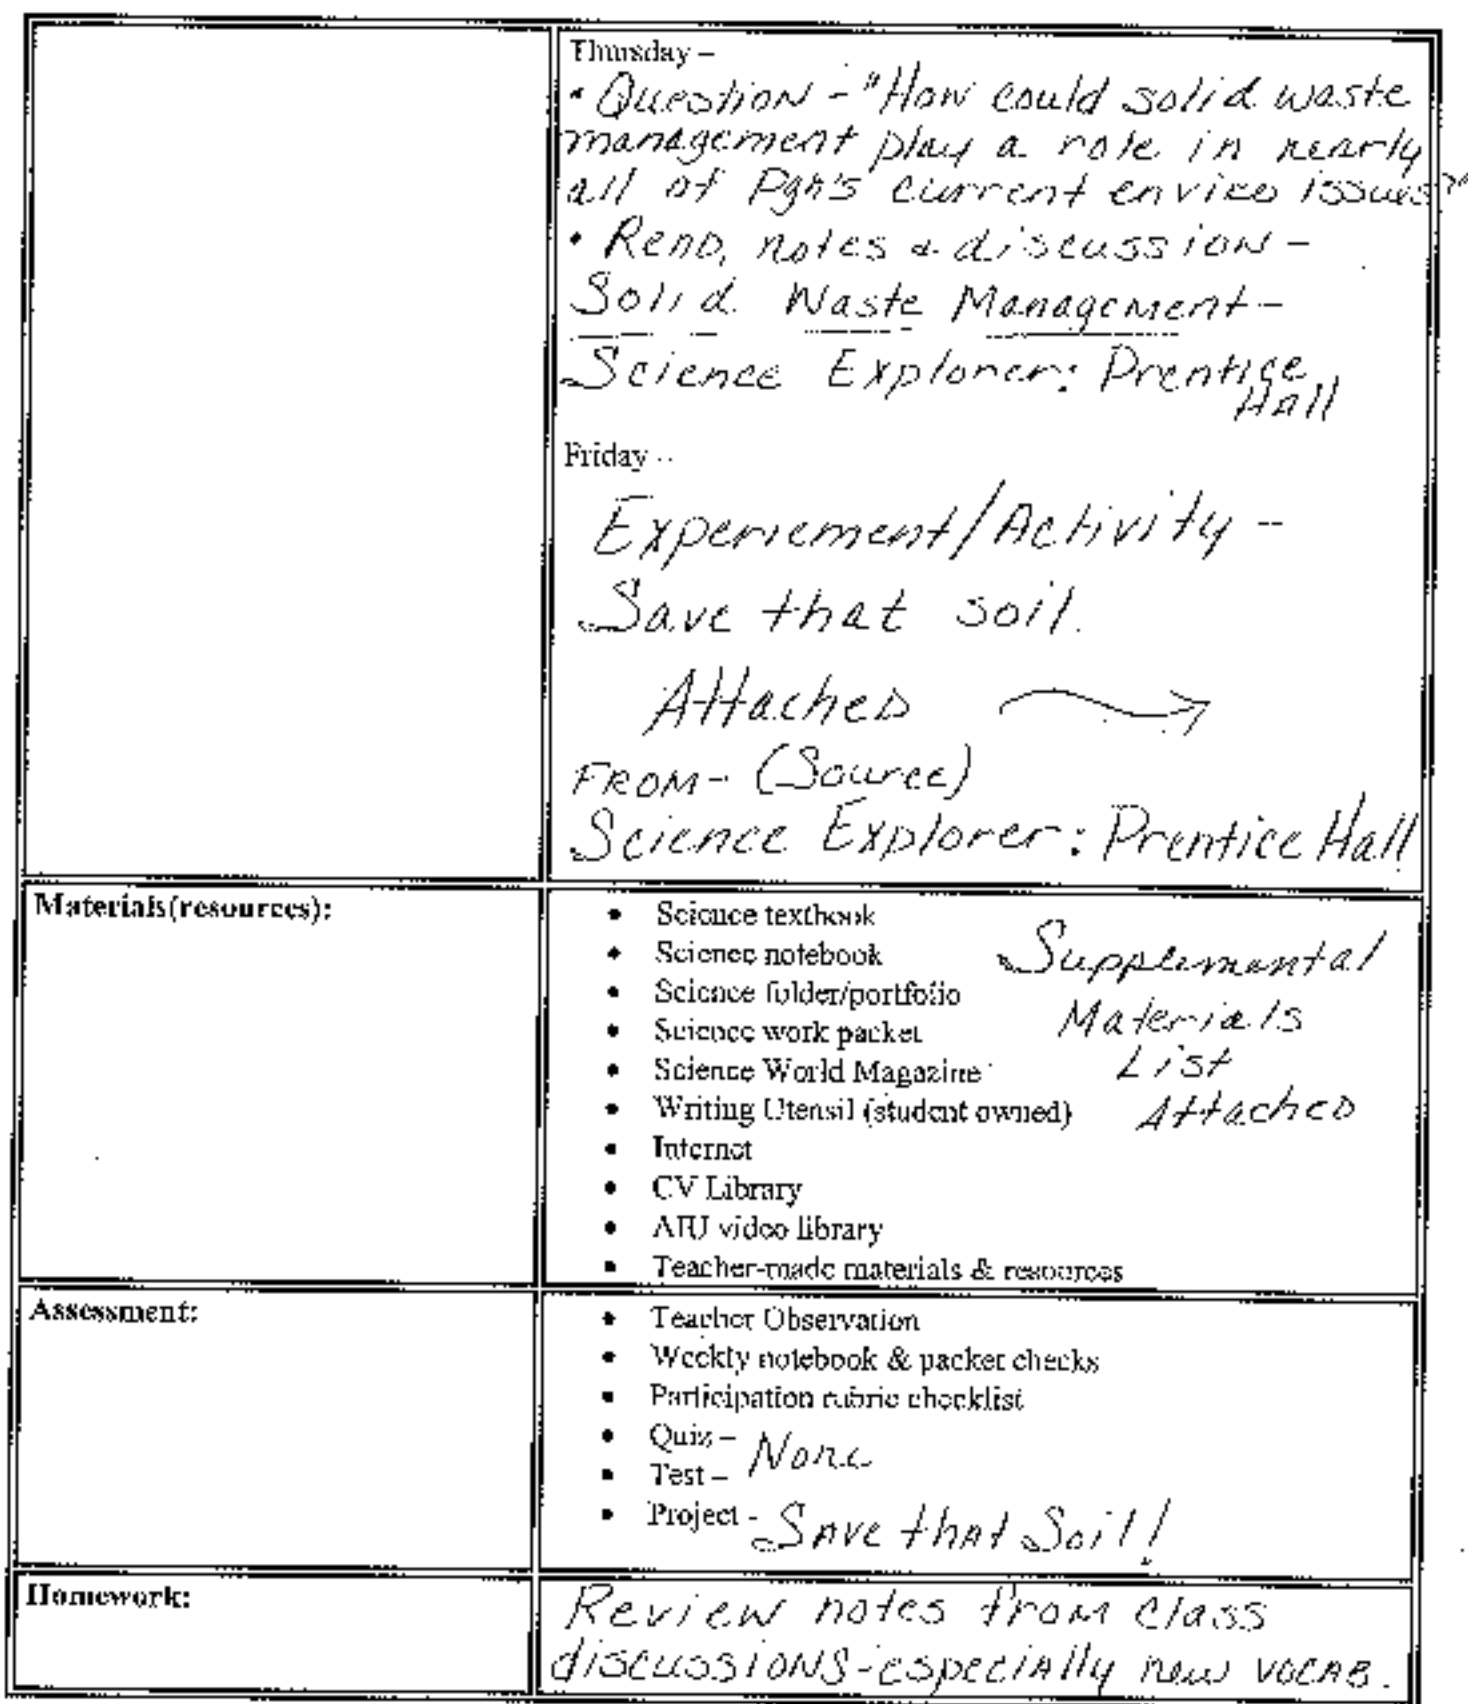 Thursday –
• Question - "How could solid waste
management play a role in nearly
all of Pgh's current enviro issues?"
• Read, notes & discussion -
Solid Waste Management -
Science Explorer: Prentice
Hall
Friday –
Experiement/Activity -
Save that soil.
Attached
FROM - (Source)
Science Explorer: Prentice Hall
Materials(resources):
• Science textbook
• Science notebook
• Science folder/portfolio
• Science work packet
• Science World Magazine
• Writing Utensil (student owned)
• Internet
• CV Library
• AIU video library
• Teacher-made materials & resources
Supplemental
Materials
List
Attached
Assessment:
• Teacher Observation
• Weekly notebook & packet checks
• Participation rubric checklist
• Quiz –
• Test –
None
• Project - Save that Soil!
Homework:
Review notes from class
discussions - especially new vocab.